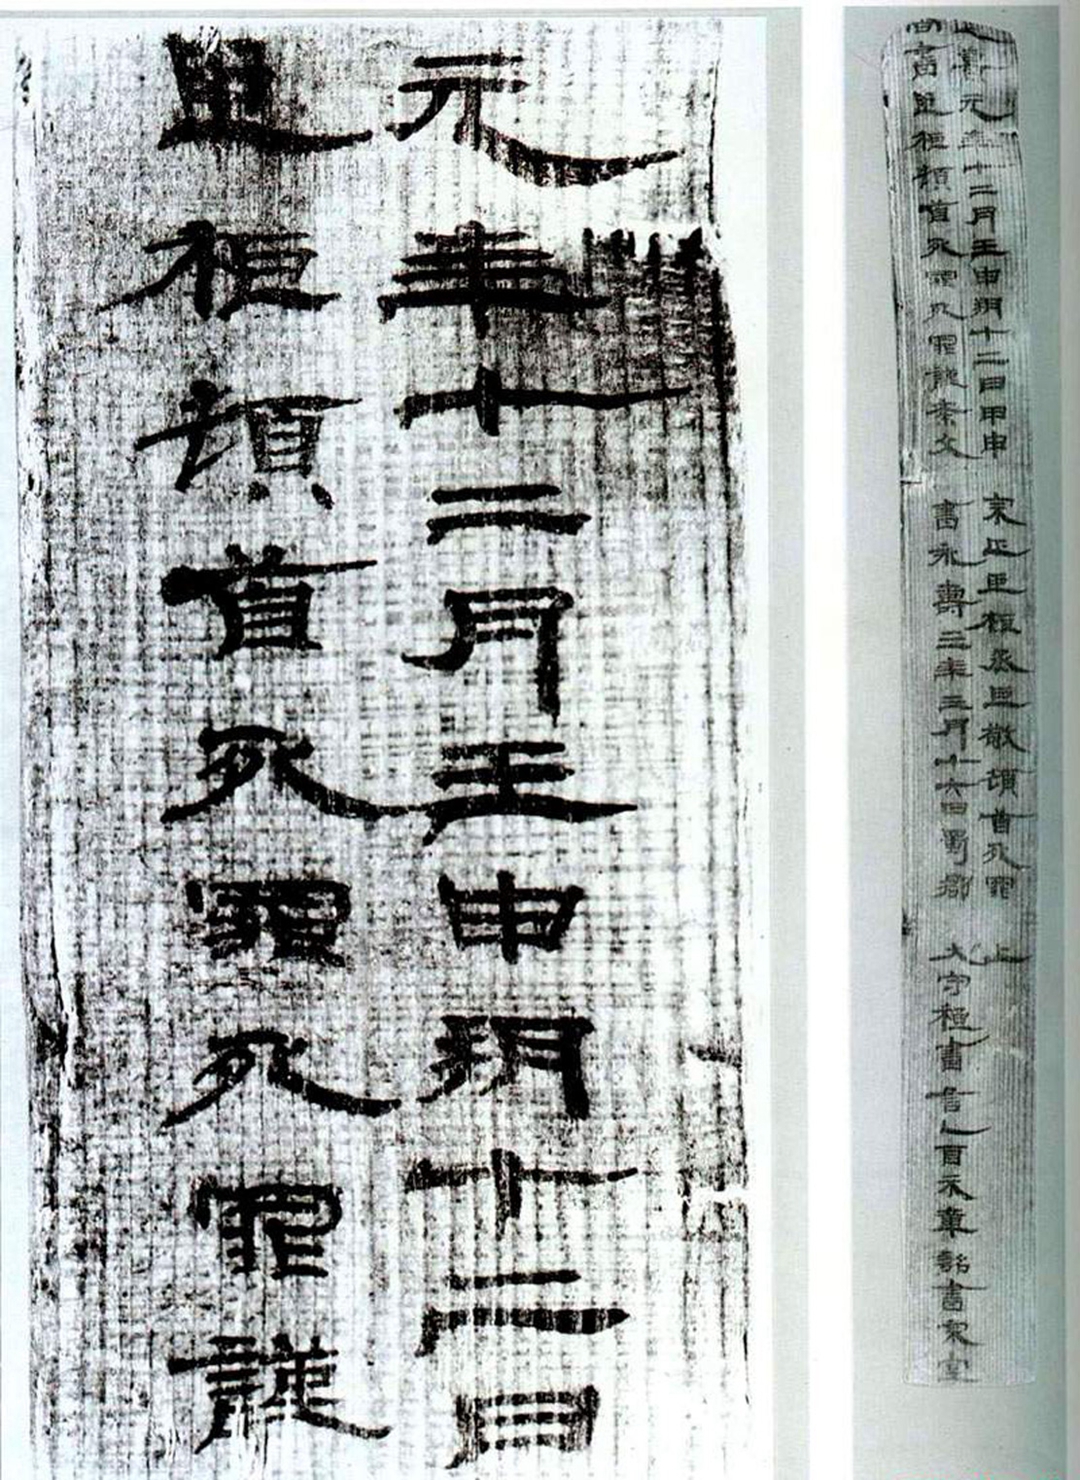 延熹元年十二月壬申朔十二日甲申 宗正臣柜丞臣敬頓首死罪 上
尚書臣柜頓首死罪死罪謹案文書永壽三年三月十六日蜀郡太守柜書言章詔書宗室
元年十二月壬申朔十二日
臣柜頓首死罪死罪謹